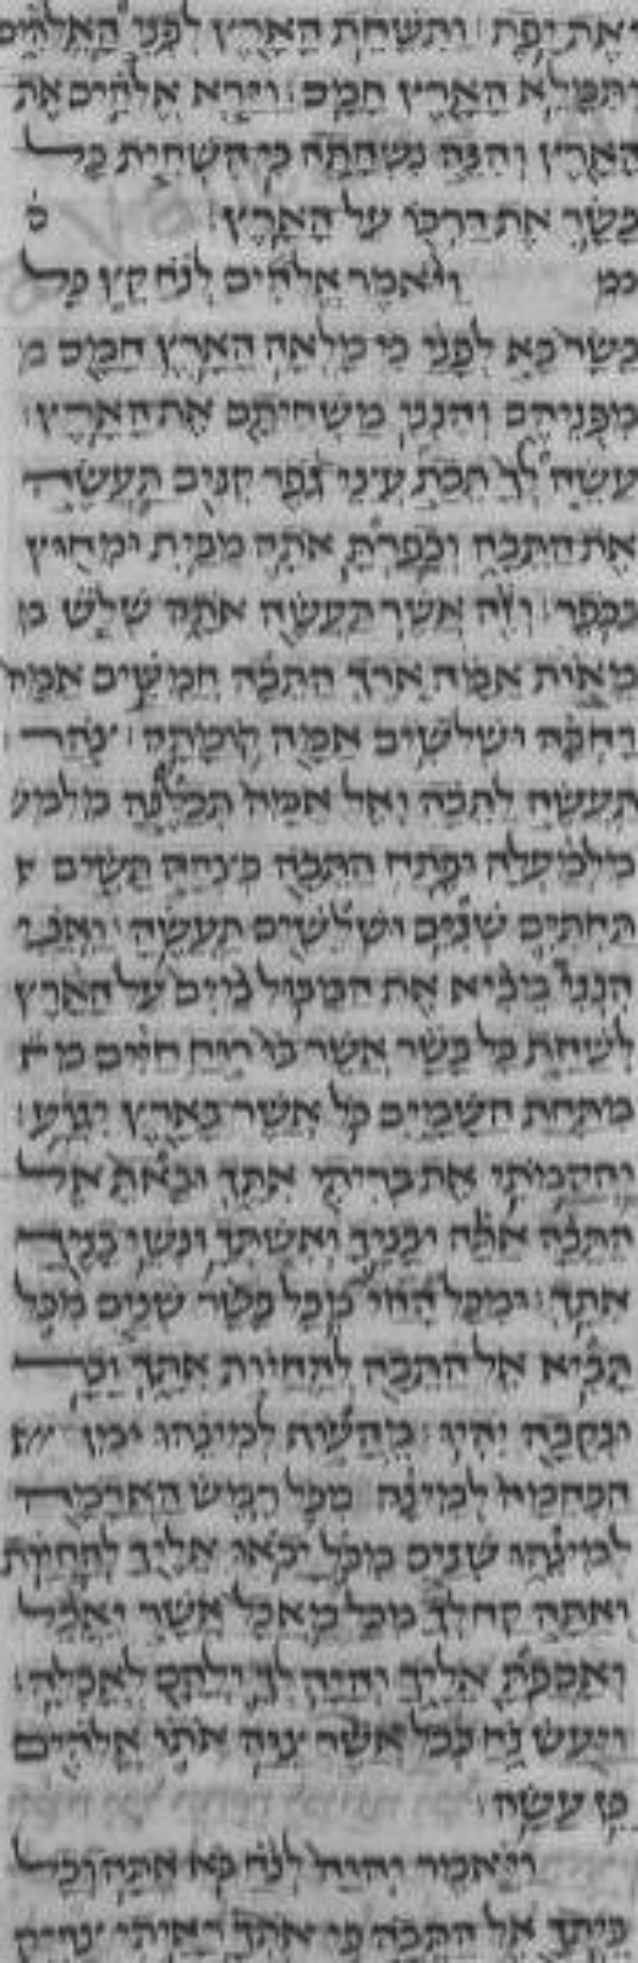 ואת יפת ׃ ותשחת הארץ לפני האלהים
ותמלא הארץ חמס ׃ וירא אלהים את
הארץ והנה נשחתה כי השחית כל
בשר את דרכו על הארץ ׃ ס
ויאמר אלהים לנח קץ כל
בשר בא לפני כי מלאה הארץ חמס מ
מפניהם והנני משחיתם את הארץ ׃
עשה לך תבת עצי גפר קנים תעשה
את התבה וכפרת אתה מבית ומחוץ
בכפר ׃ וזה אשר תעשה אתה שלש מ
מאות אמה ארך התבה חמשים אמה
רחבה ושלשים אמה קומתה ׃ צהר
תעשה לתבה ואל אמה תכלנה מלמע
מלמעלה ופתח התבה בצדה תשים
תחתים שנים ושלשים תעשה ׃ ואני
הנני מביא את המבול מים על הארץ
לשחת כל בשר אשר בו רוח חיים מת
מתחת השמים כל אשר בארץ יגוע ׃
והקמותי את בריתי אתך ובאת אל
התבה אתה ובניך ואשתך ונשי בניך
אתך ׃ ומכל החי מכל בשר שנים מכל
תביא אל התבה להחיות אתך זכר
ונקבה יהיו ׃ מהעוף למינהו ומן
הבהמה למינה מכל רמש האדמה
למינהו שנים מכל יבאו אליך להחיות
ואתה קח לך מכל מאכל אשר יאכל
ואספת אליך והיה לך ולהם לאכלה ׃
ויעש נח ככל אשר צוה אתו אלהים
כן עשה ׃
ויאמר יהוה לנח בא אתה וכל
ביתך אל התבה כי אתך ראיתי צדיק